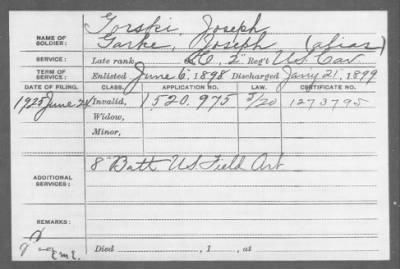 Gorski, Joseph
NAME OF SOLDIER: Garke, Joseph (alias)
SERVICE: Late rank, Co. 2" Reg't U.S. Cav
TERM OF SERVICE: Enlisted June 6, 1898 Discharged Jany 21, 1899
DATE OF FILING. CLASS. APPLICATION NO. LAW. CERTIFICATE NO.
1925 June 24 Invalid, 1520,975 5/20 1273795
Widow,
Minor,
ADDITIONAL SERVICES: 8" Batt U.S. Field Art
REMARKS:
Died , 1 , at